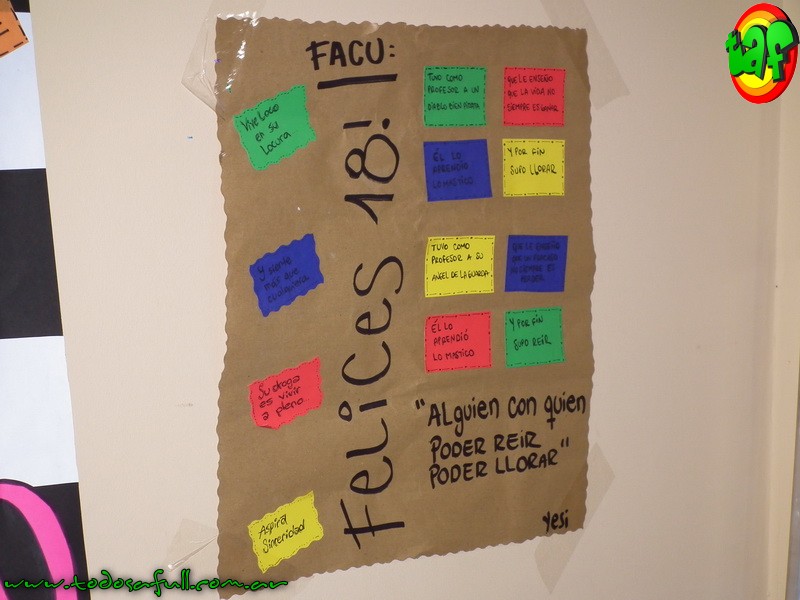 FACU:
Felices 18!
Vive Loco
en su
Locura
Y siente
más que
Su droga
es vivir
a pleno
Aspira
Sinceridad
Tuvo como
profesor a un
diablo bien
que le enseñó
que la vida no
siempre es ganar
Él lo
aprendió
lo mastico
Y por fin
supo llorar
Tuvo como
profesor a su
angel de la guarda
que le enseñó
Él lo
aprendió
lo mastico
Y por fin
supo reír
"Alguien con quien
poder reir
poder llorar"
yesi
taf
www.todosafull.com.ar